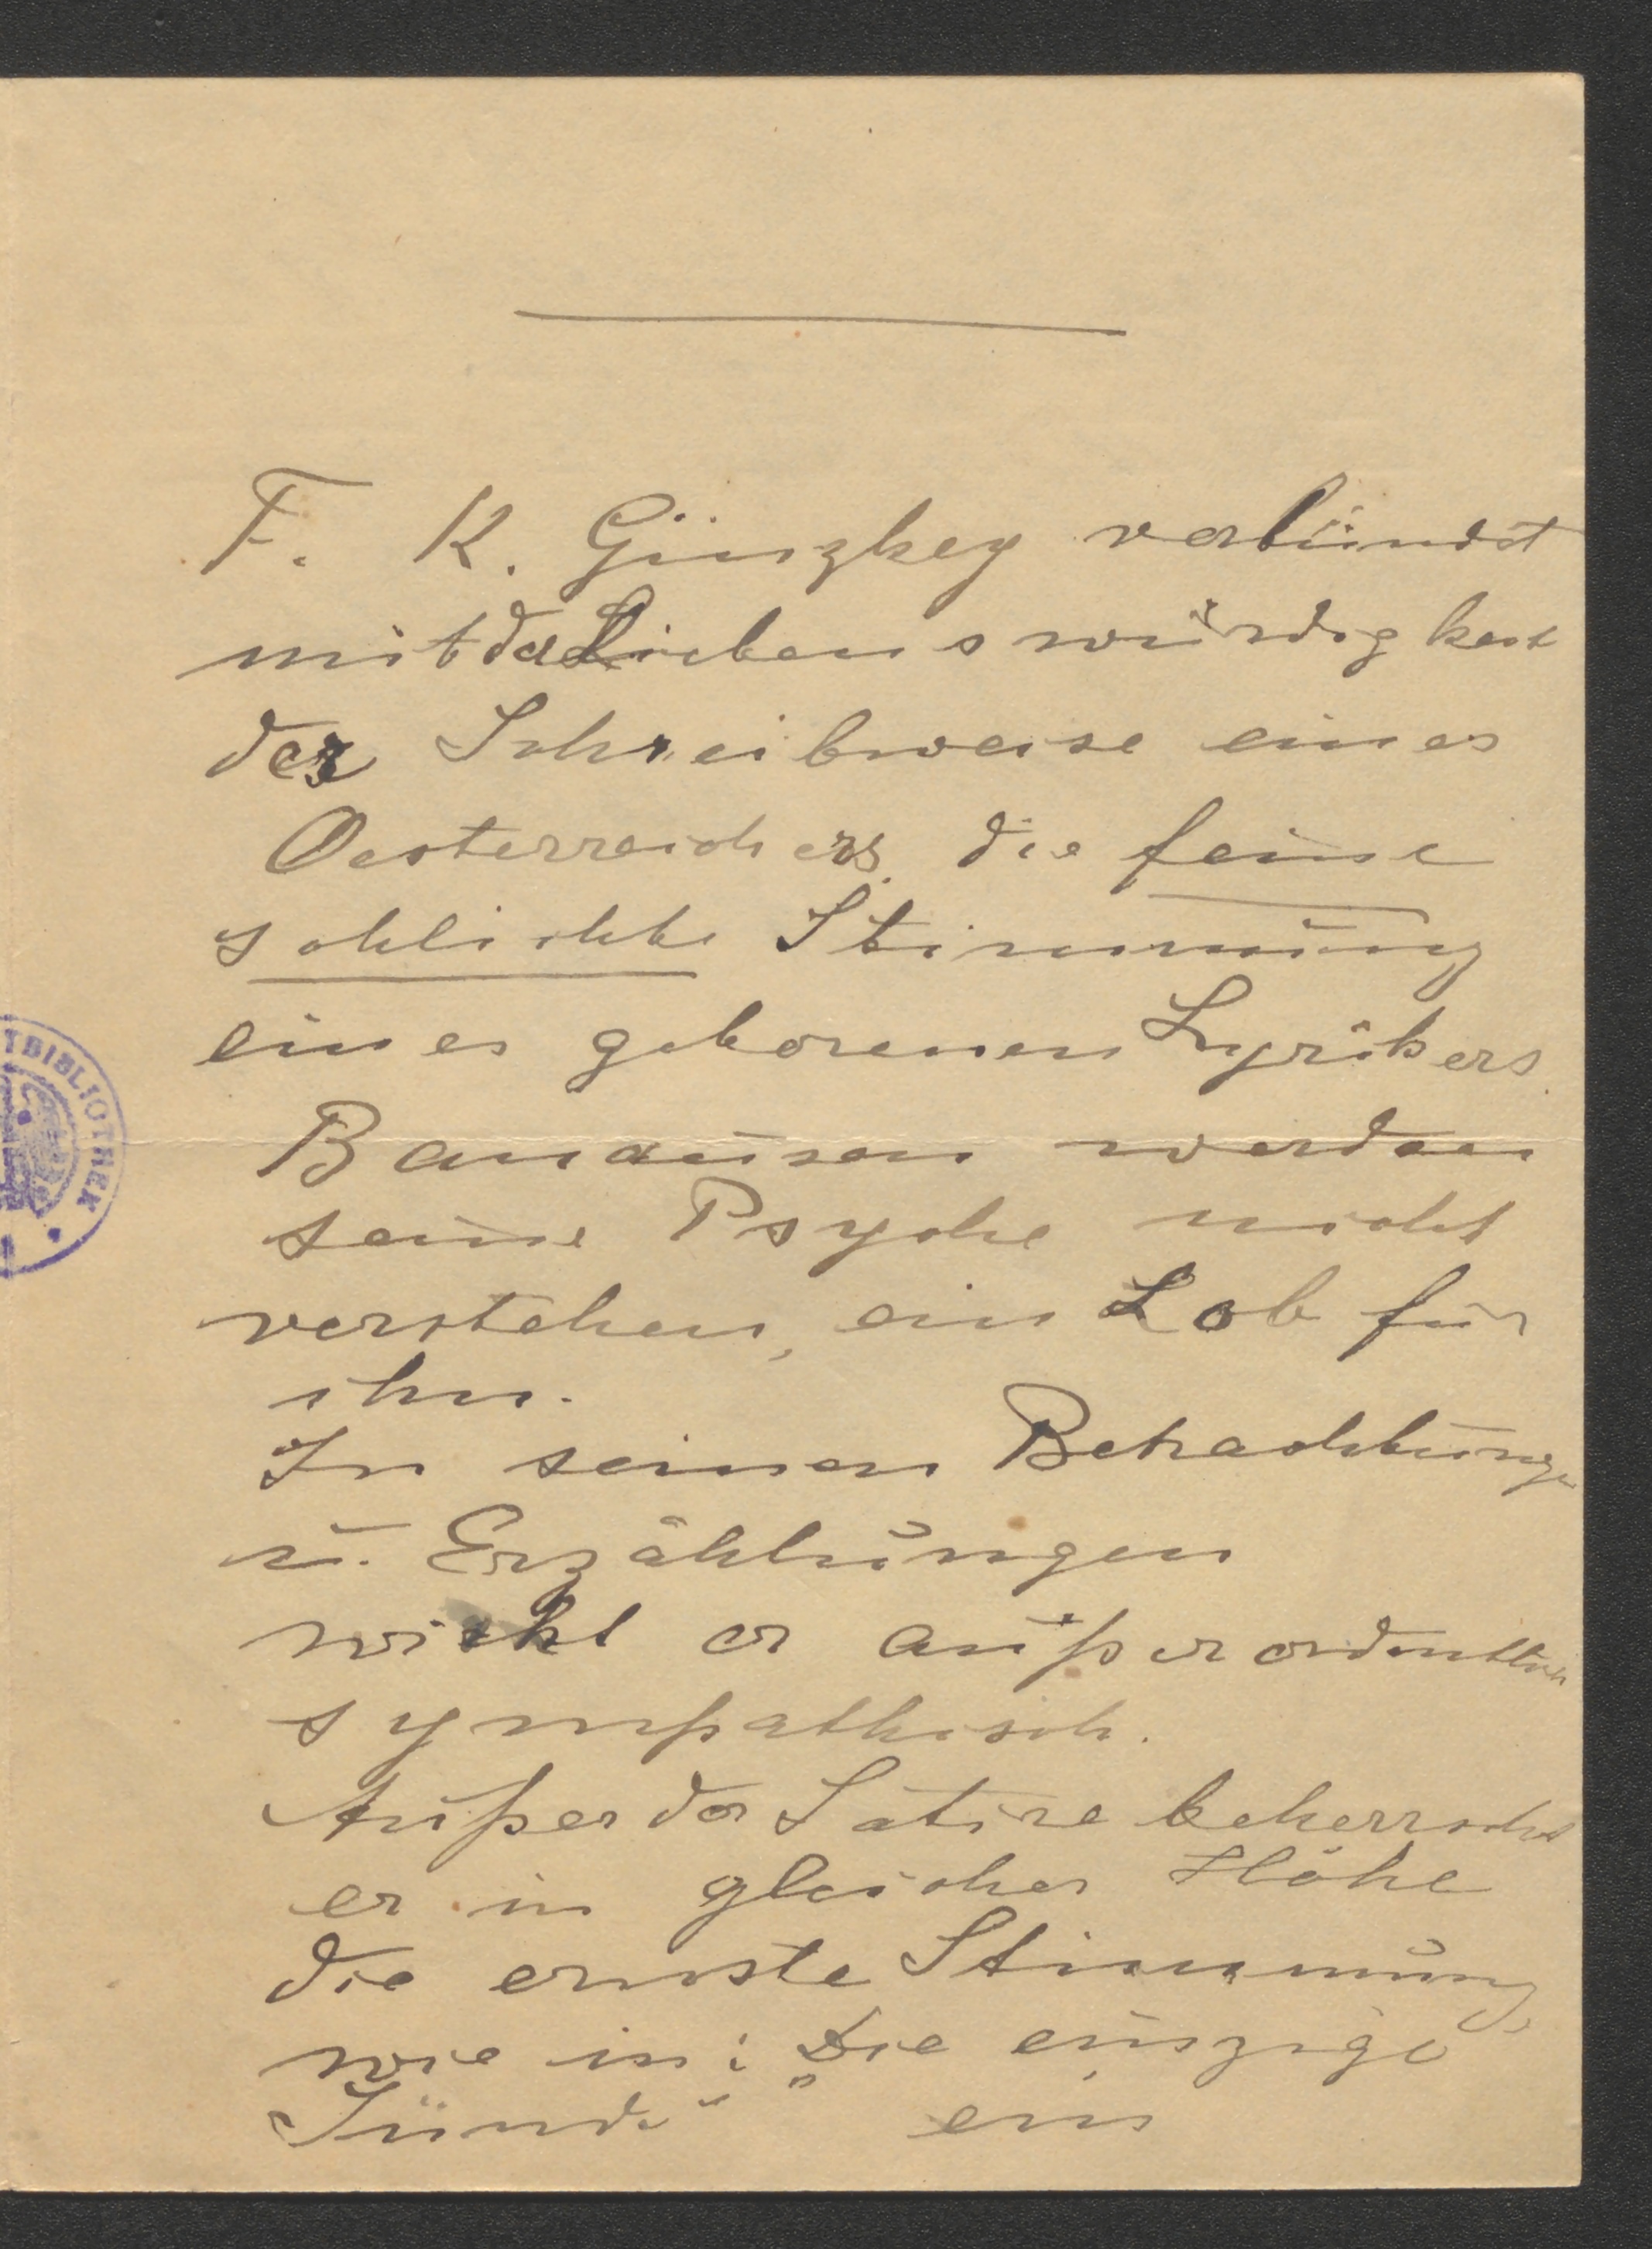 F. K. Günzkey verbündet
mit der Liebenswürdigkeit
der Schreibweise eines
Oesterreichers die feine
schlichte Stimmung
eines geborenen Lyrikers.
Banausen werden
seine Psyche nicht
verstehen, ein Lob für
ihn.
In seinen Betrachtungen
u. Erzählungen
wirkt er außerordentlich
sympathisch.
Außer der Satire beherrscht
er in gleicher Höhe
die ernste Stimmung,
wie in: „Die einzige
Sünde" ein
TBIBLIOTHEK